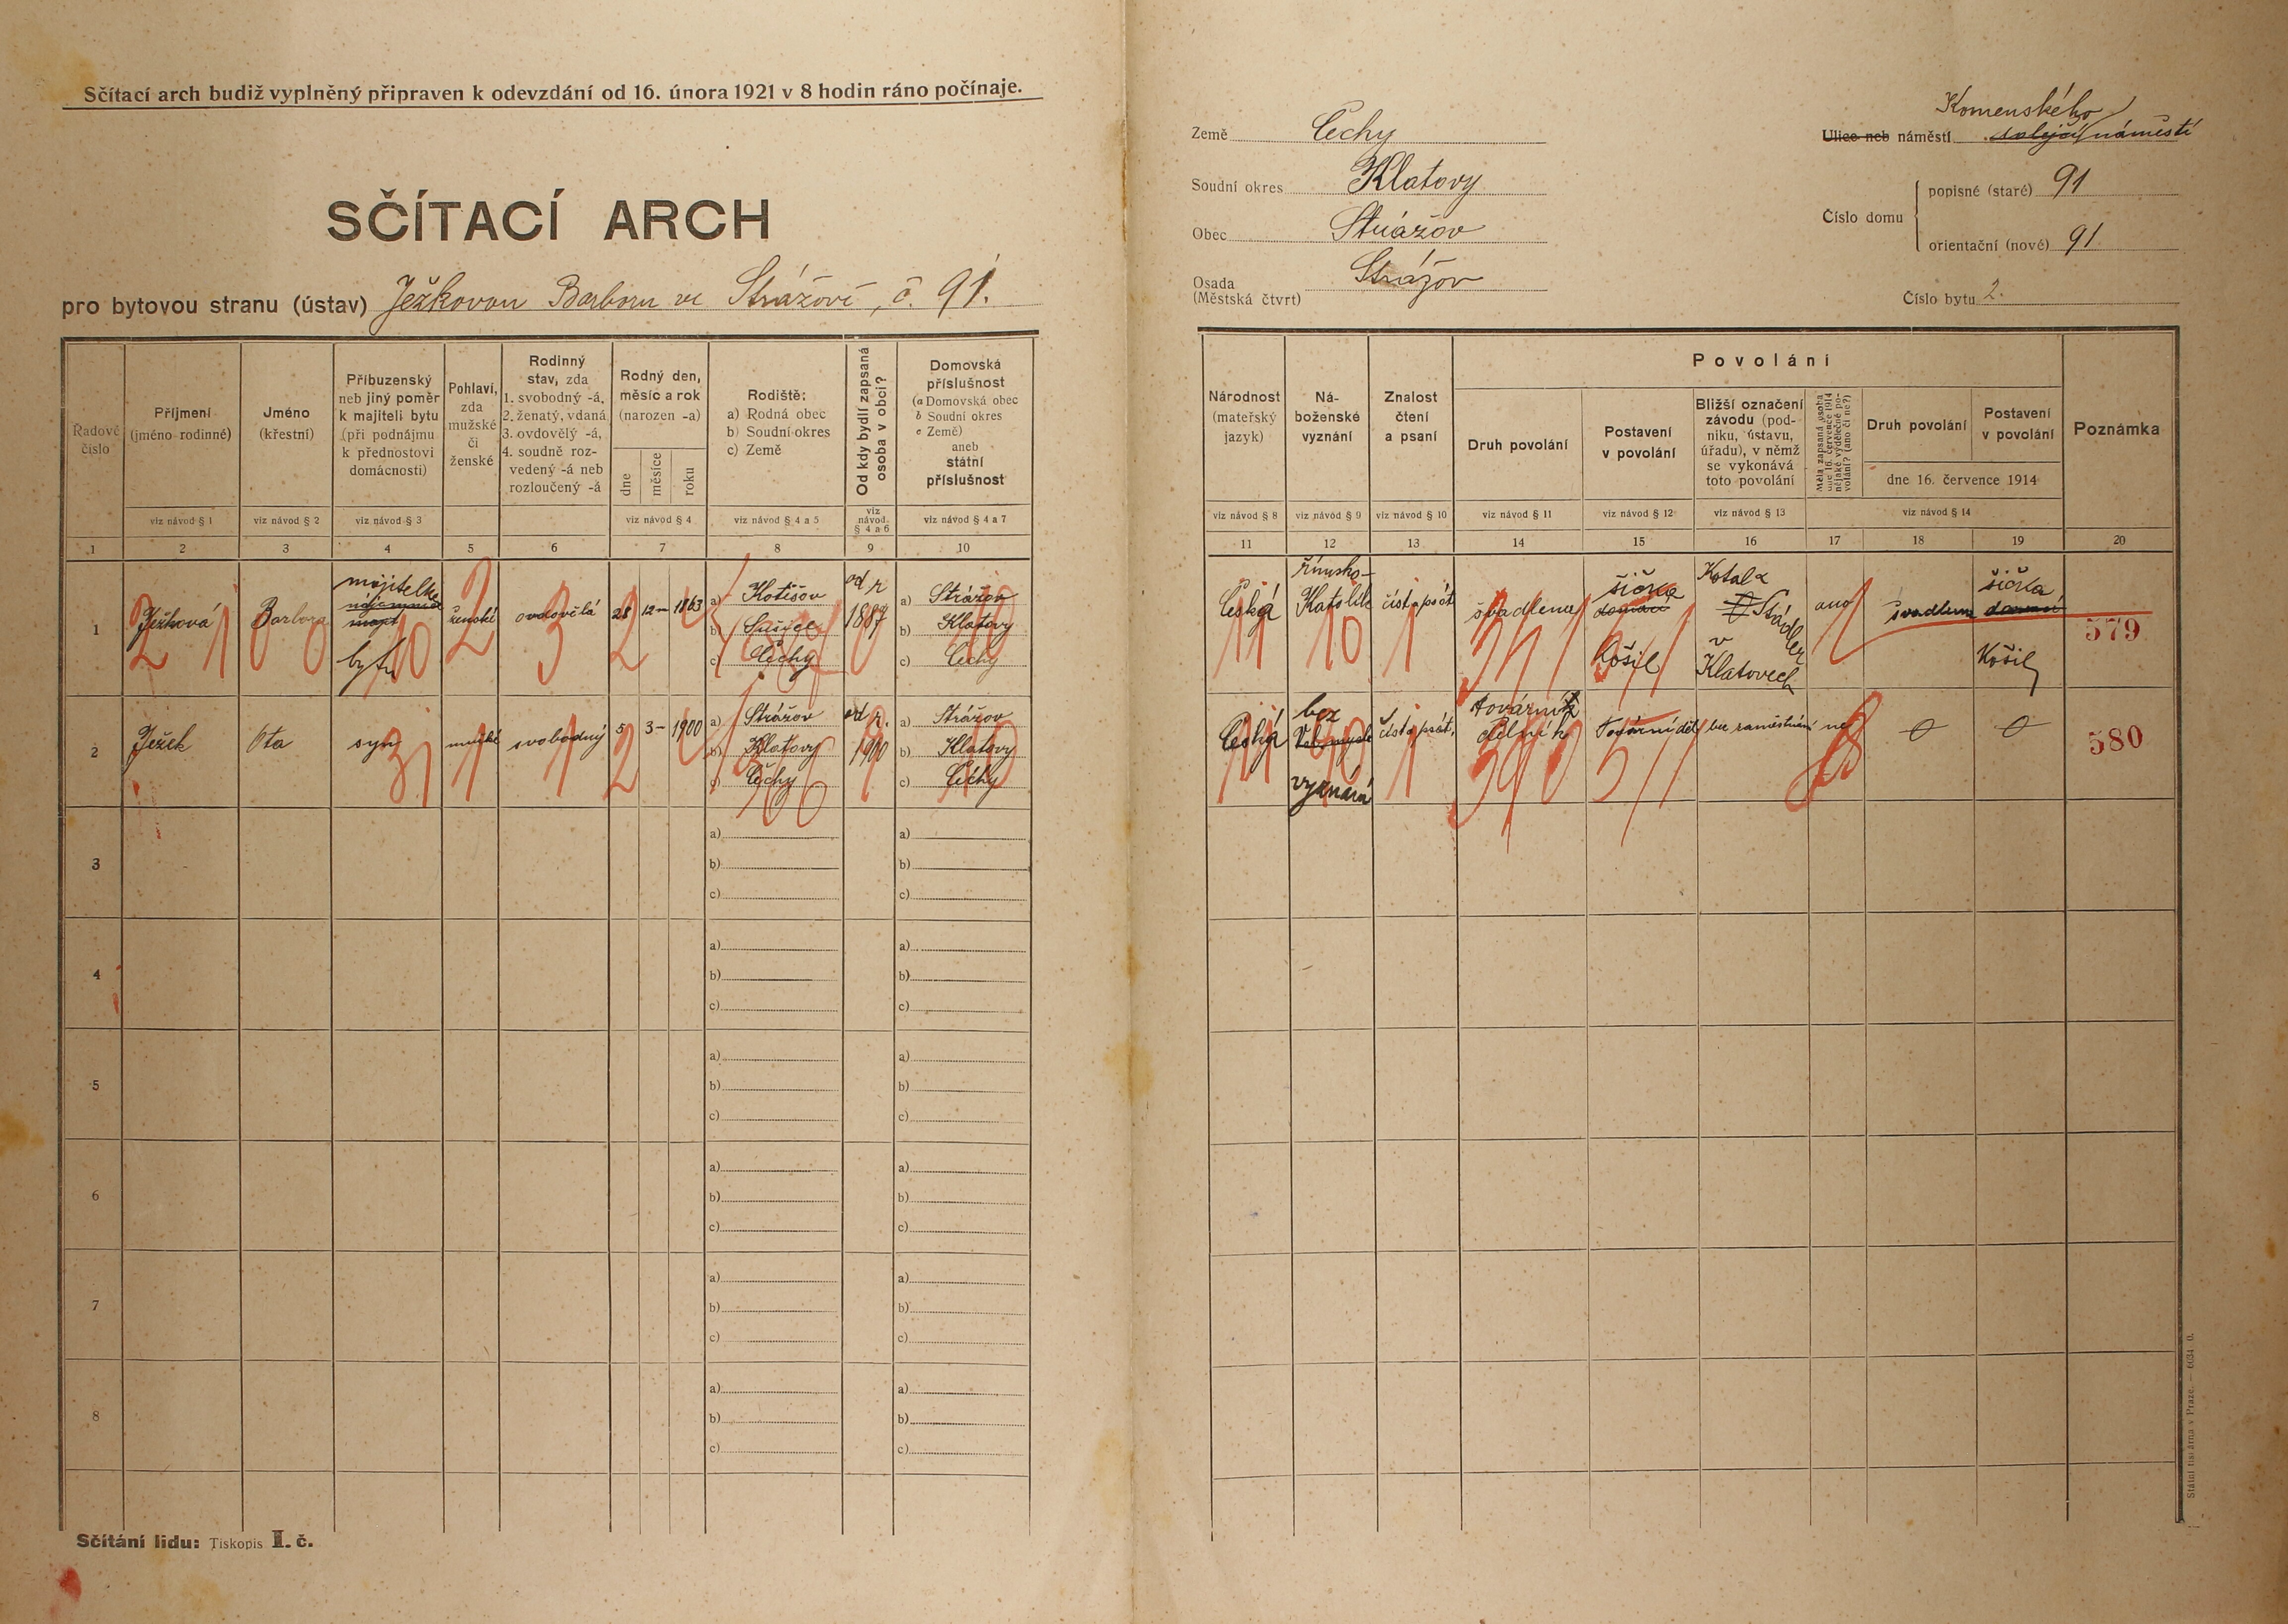 Sčítací arch budiž vyplněný připraven k odevzdání od 16. února 1921 v 8 hodin ráno počínaje.
SČÍTACÍ ARCH
pro bytovou stranu (ústav) Ježkovou Barboru ve Strážově, č. 91.
Země Čechy
Soudní okres Klatovy
Obec Strážov
Osada Strážov
(Městská čtvrt)
Komenského
Ulice neb náměstí náměstí
Číslo domu
popisné (staré) 91
orientační (nové) 91
Číslo bytu 2.
Řadové číslo
Příjmení (jméno rodinné)
Jméno (křestní)
Příbuzenský neb jiný poměr k majiteli bytu (při podnájmu k přednostovi domácnosti)
Pohlaví, zda mužské či ženské
Rodinný stav, zda 1. svobodný -á, 2. ženatý, vdaná 3. ovdovělý -á, 4. soudně rozvedený -á neb rozloučený -á
Rodný den, měsíc a rok (narozen -a)
dne měsíce roku
Rodiště: a) Rodná obec b) Soudní okres c) Země
Od kdy bydlí zapsaná osoba v obci?
Domovská příslušnost (a Domovská obec b Soudní okres c Země) aneb státní příslušnost
viz návod § 1 viz návod § 2 viz návod § 3 viz návod § 4 viz návod § 4 a 5 viz návod § 4 a 6 viz návod § 4 a 7
1 2 3 4 5 6 7 8 9 10
Národnost (mateřský jazyk)
Náboženské vyznání
Znalost čtení a psaní
Povolání
Druh povolání
Postavení v povolání
Bližší označení závodu (podniku, ústavu, úřadu), v němž se vykonává toto povolání
Měla zapsaná osoba dne 16. července 1914 nějaké výdělečné povolání? (ano či ne?)
Druh povolání
Postavení v povolání
dne 16. července 1914
Poznámka
viz návod § 8 viz návod § 9 viz návod § 10 viz návod § 11 viz návod § 12 viz návod § 13 viz návod § 14
11 12 13 14 15 16 17 18 19 20
1 Ježková Barbora majitelka bytu ženské ovdovělá 28 12 1863
a) Kotěšov
b) Sušice
c) Čechy
od r. 1887
a) Strážov
b) Klatovy
c) Čechy
Česká římsko-Katolík číst a psát švadlena šička domácí košil Kotal a Städler v Klatovech ano švadlena šička domácí Košil 579
2 Ježek Ota syn mužské svobodný 5 3 1900
a) Strážov
b) Klatovy
c) Čechy
od r. 1900
a) Strážov
b) Klatovy
c) Čechy
Česká bez vyznání číst a psát, tovární dělník Tovární děl bez zaměstnání ne 0 0 580
3 a) a)
b) b)
c) c)
4 a) a)
b) b)
c) c)
5 a) a)
b) b)
c) c)
6 a) a)
b) b)
c) c)
7 a) a)
b) b)
c) c)
8 a) a)
b) b)
c) c)
Sčítání lidu: Tiskopis I. č.
Státní tiskárna v Praze. — 6034 0.